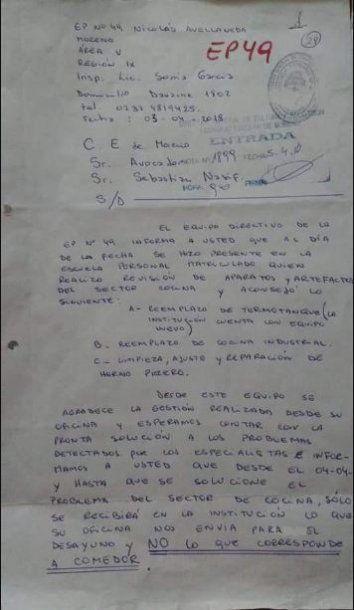 EP Nº 49 NICOLÁS AVELLANEDA
MORENO
ÁREA V
REGIÓN IX
Insp. Lic. Sonia García
Domicilio Daurzine 1802
tel. 0237 4819425.
Fecha : 03-04-2018
EP49
29
ENTRADA
C. E de Moreno
Nº 1899
Sr. Avocado
Sr. Sebastián Nasif.
HORA 9
S/D
EL EQUIPO DIRECTIVO DE LA
EP Nº 49 INFORMA A USTED QUE AL DÍA
DE LA FECHA SE HIZO PRESENTE EN LA
ESCUELA PERSONAL MATRICULADO QUIEN
REALIZÓ REVISIÓN DE APARATOS Y ARTEFACTOS
DEL SECTOR COCINA Y ACONSEJÓ LO
SIGUIENTE:
A- REEMPLAZO DE TERMOTANQUE (LA
INSTITUCIÓN CUENTA CON EQUIPO
NUEVO)
B- REEMPLAZO DE COCINA INDUSTRIAL.
C- LIMPIEZA, AJUSTE Y REPARACIÓN DE
HORNO PIZERO.
DESDE ESTE EQUIPO SE
AGRADECE LA GESTIÓN REALIZADA DESDE SU
OFICINA Y ESPERAMOS CONTAR CON LA
PRONTA SOLUCIÓN A LOS PROBLEMAS
DETECTADOS POR LOS ESPECIALISTAS E INFOR-
MAMOS A USTED QUE DESDE EL 04-04-
Y HASTA QUE SE SOLUCIONE EL
PROBLEMA DEL SECTOR DE COCINA, SÓLO
SE RECIBIRÁ EN LA INSTITUCIÓN LO QUE
SU OFICINA NOS ENVIA PARA EL
DESAYUNO Y NO LO QUE CORRESPONDE
A COMEDOR.